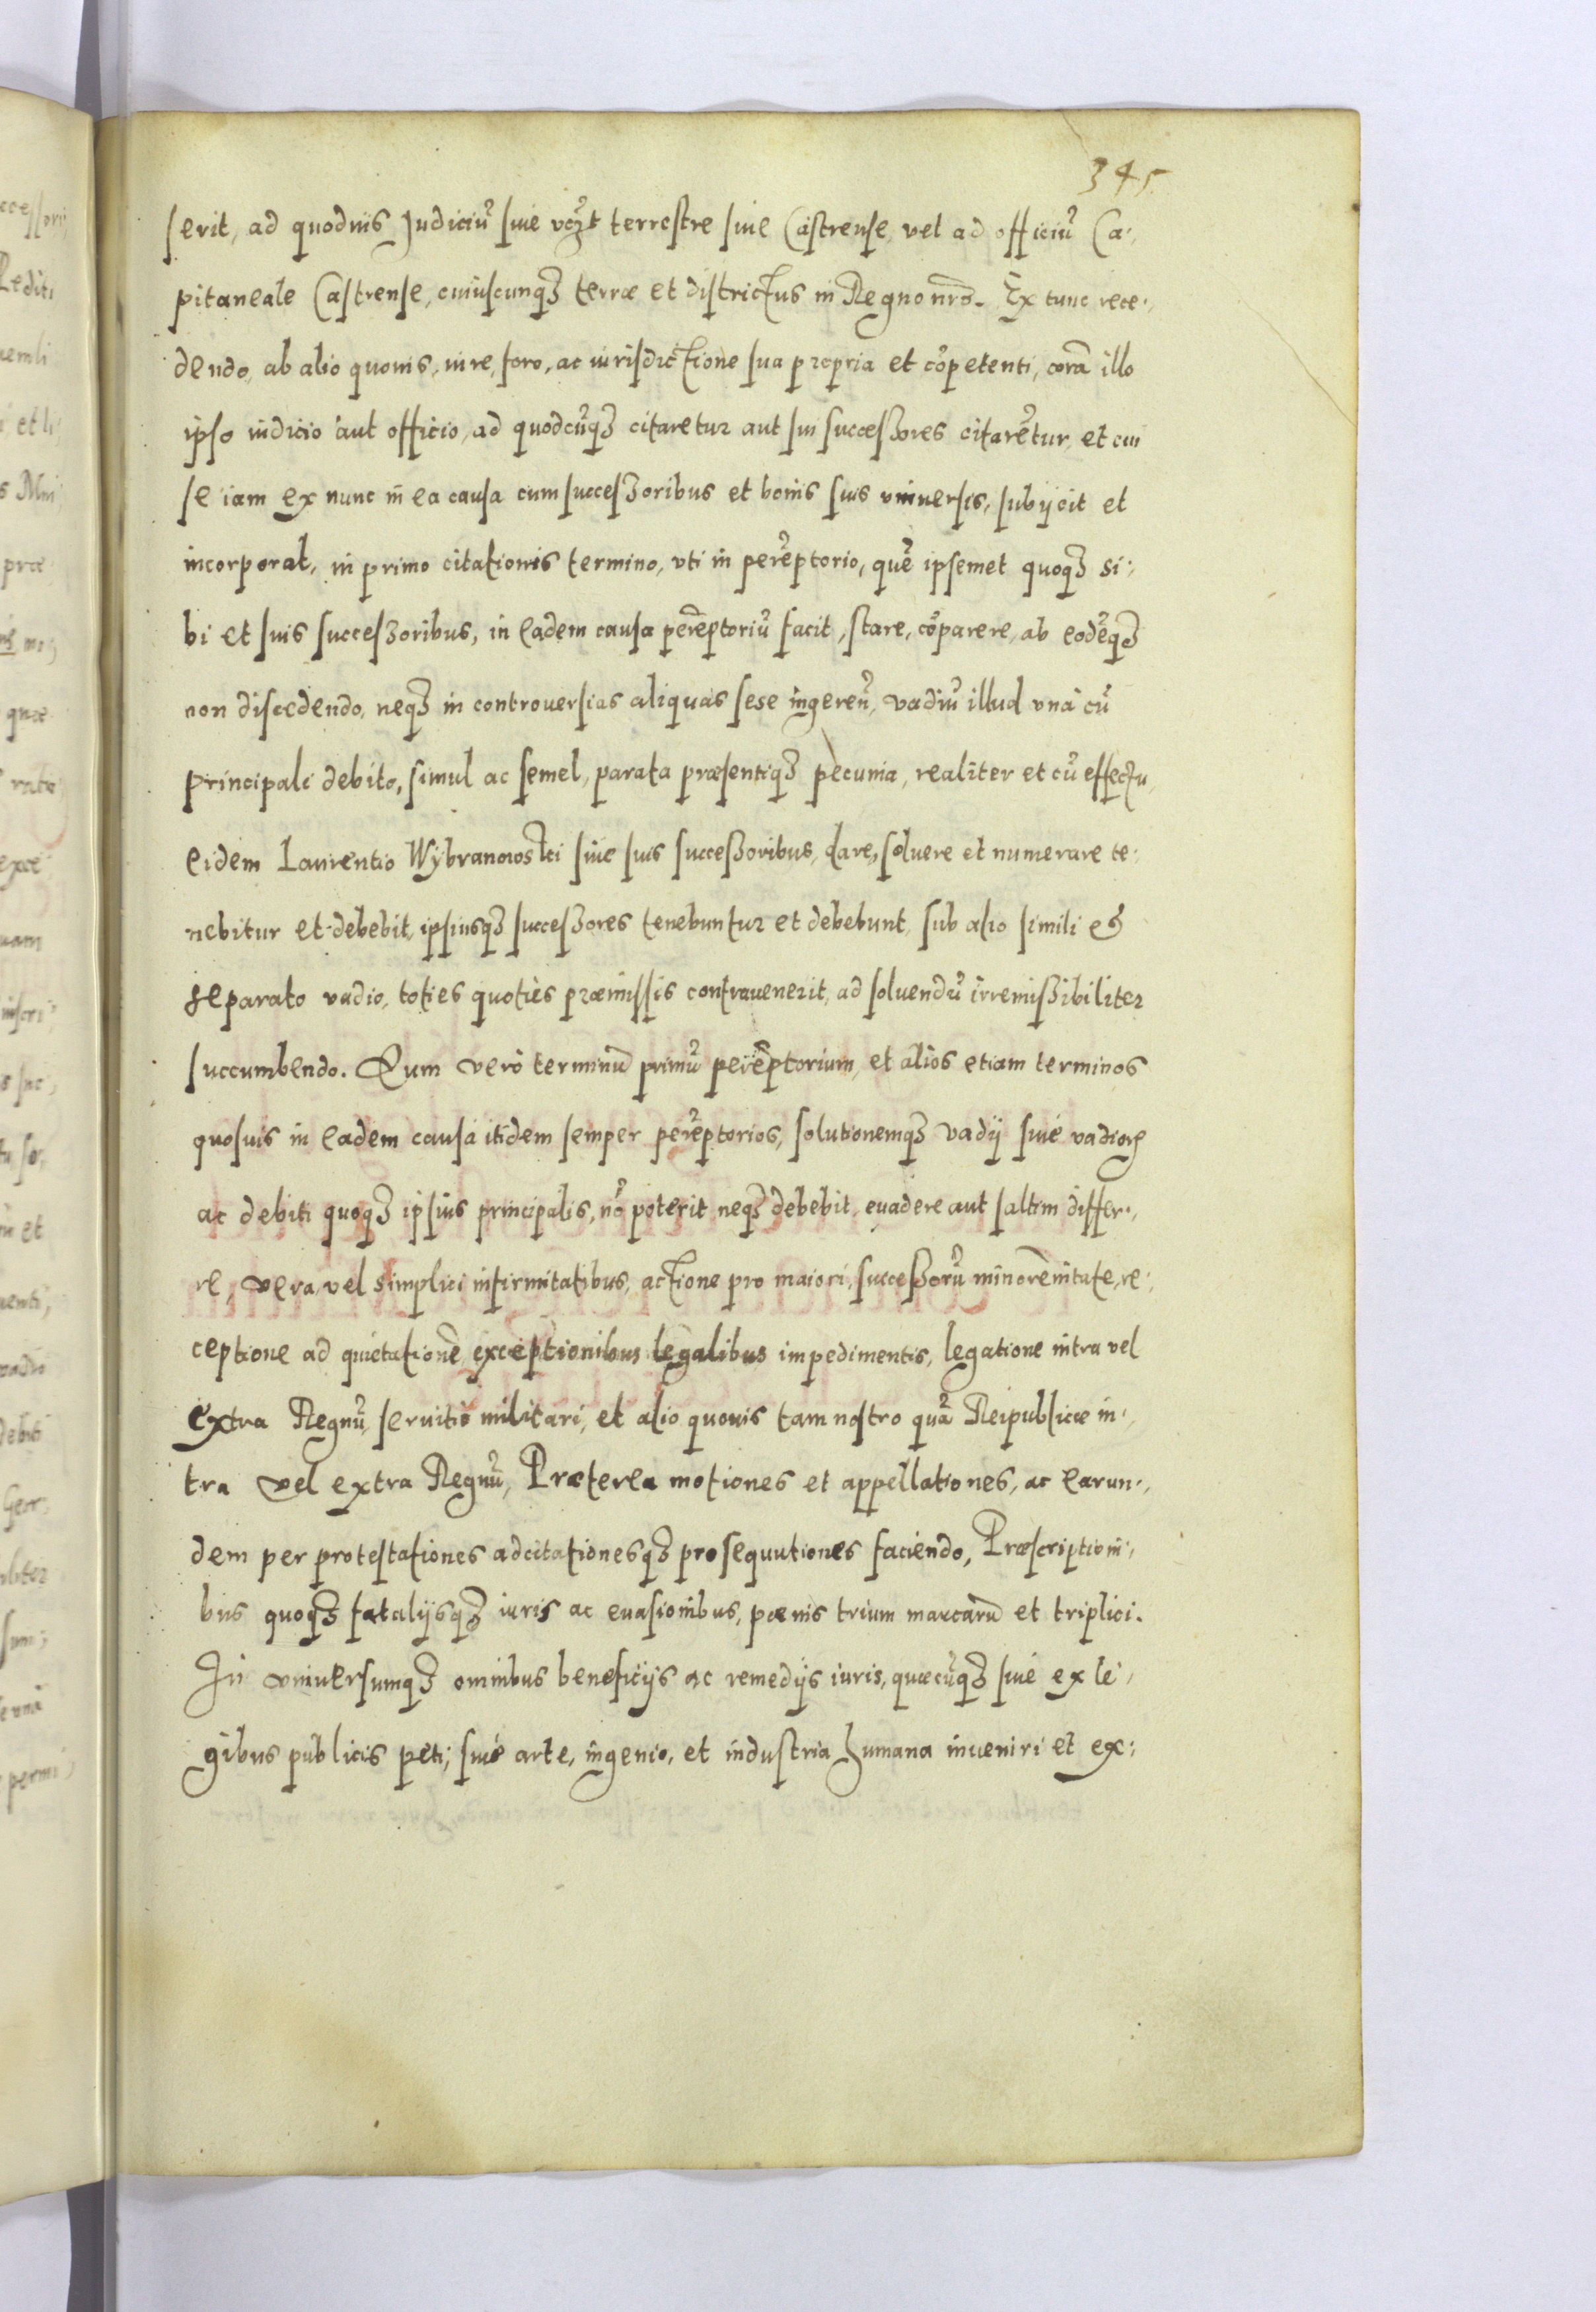 345
serit, ad quoduis Judiciũ siue vczt terrestre siue Castrense, vel ad officiũ Ca-
pitaneale Castrense, cuiuscunqʒ terræ et districtus in Regno nr̃o. Ex tunc rece-
dendo, ab alio quouis, iure, foro, ac iurisdictione sua propria et cõpetenti, corã illo
ipso iudicio aut officio, ad quodcũqʒ citaretur aut sui successores citarẽtur, et cui
se iam ex nunc in ea causa cum successoribus et bonis suis vniuersis, subijcit et
incorporat, in primo citationis termino, vti in perẽptorio, quẽ ipsemet quoqʒ si-
bi et suis successoribus, in eadem causa perẽptoriũ facit, stare, cõparere, ab eodẽqʒ
non discedendo, neqʒ in controuersias aliquas sese ingerẽn, vadiũ illud vnà cũ
principali debito, simul ac semel, parata præsentiqʒ pecunia, realiter et cũ effectu,
eidem Laurentio Wÿbranowski siue suis successoribus, dare, soluere et numerare te-
nebitur et debebit, ipsiusqʒ successores tenebuntur et debebunt, sub alio simili et
separato vadio, toties quoties præmissis contrauenerit, ad soluendũ irremissibiliter
succumbendo. Quem verò terminũ primũ perẽptorium, et alios etiam terminos
quosuis in eadem causa itidem semper perẽptorios, solutionemqʒ vadij siue vadiorꝫ
ac debiti quoqʒ ipsius principalis, nõ poterit neqʒ debebit, euadere aut saltim differ-
re, vera vel simplici infirmitatibus, actione pro maiori, successorũ minorẽnitate, re-
ceptione ad quietationẽ, exceptionibus legalibus impedimentis, legatione intra vel
extra Regnũ, seruitio militari, et alio quouis tam nostro quã Reipublicæ in-
tra vel extra Regnũ, Præterea motiones et appellationes, ac earun-
dem per protestationes adcitationesqʒ prosequutiones faciendo, Præscriptioni-
bus quoqʒ fatalijsqʒ iuris ac euasionibus, pœnis trium marcarũ et triplici.
In vniuersumqʒ omnibus beneficijs ac remedijs iuris, quæcũqʒ siue ex le-
gibus publicis peti, siue arte, ingenio, et industria humana inueniri et ex-